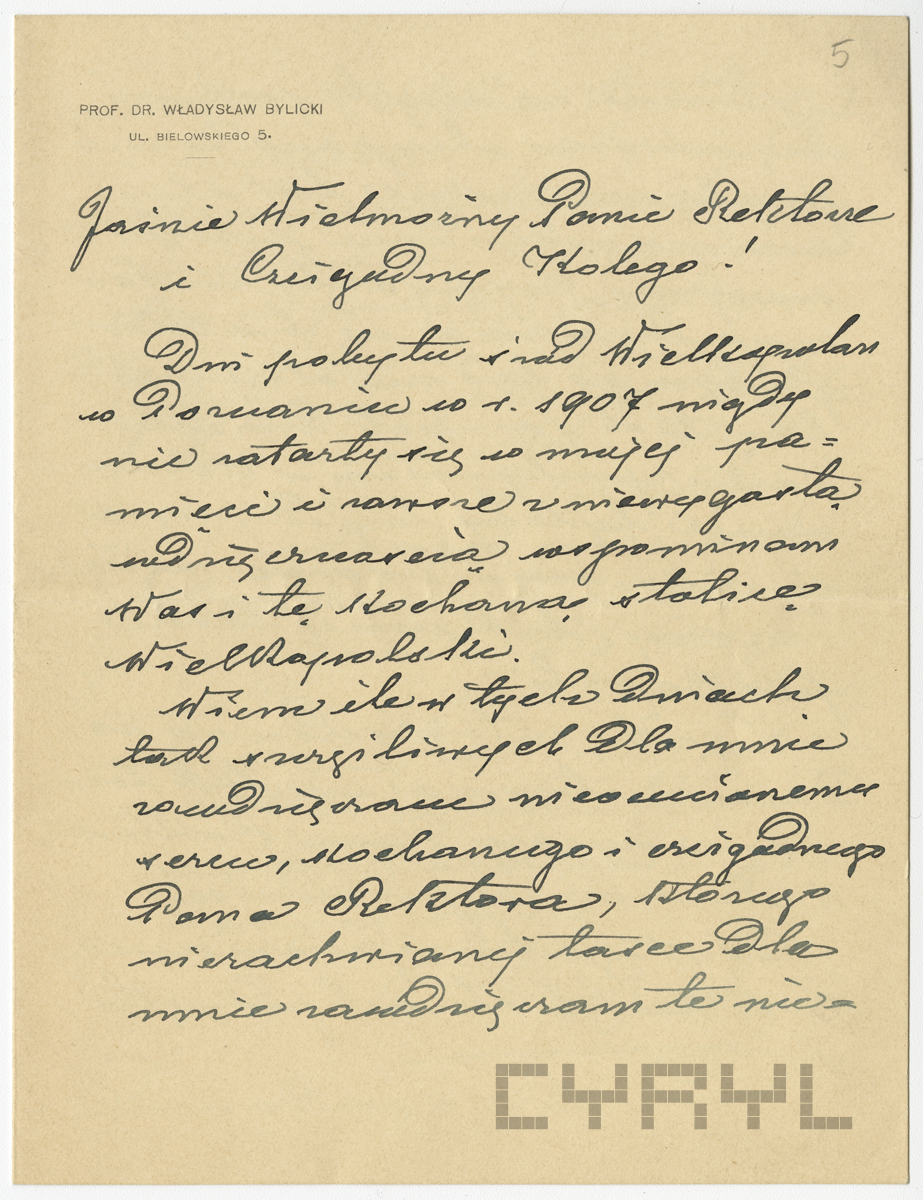 5
PROF. DR. WŁADYSŁAW BYLICKI
UL. BIELOWSKIEGO 5.
Jaśnie Wielmożny Panie Rektorze
i Czcigodny Kolego!
Dni pobytu śród Wielkopolan
w Poznaniu w r. 1907 nigdy
nie zatarły się w mojej pa=
mięci i zawsze z niewygasłą
wdzięcznością wspominam
Was i tę kochaną stolicę
Wielkopolski.
Wiem ile w tych dniach
tak szczęśliwych dla mnie
zawdzięczam nieocenionemu
sercu, kochanego i czcigodnego
Pana Rektora, którego
niezachwianej łasce dla
mnie zawdzięczam te nie=
CYRYL